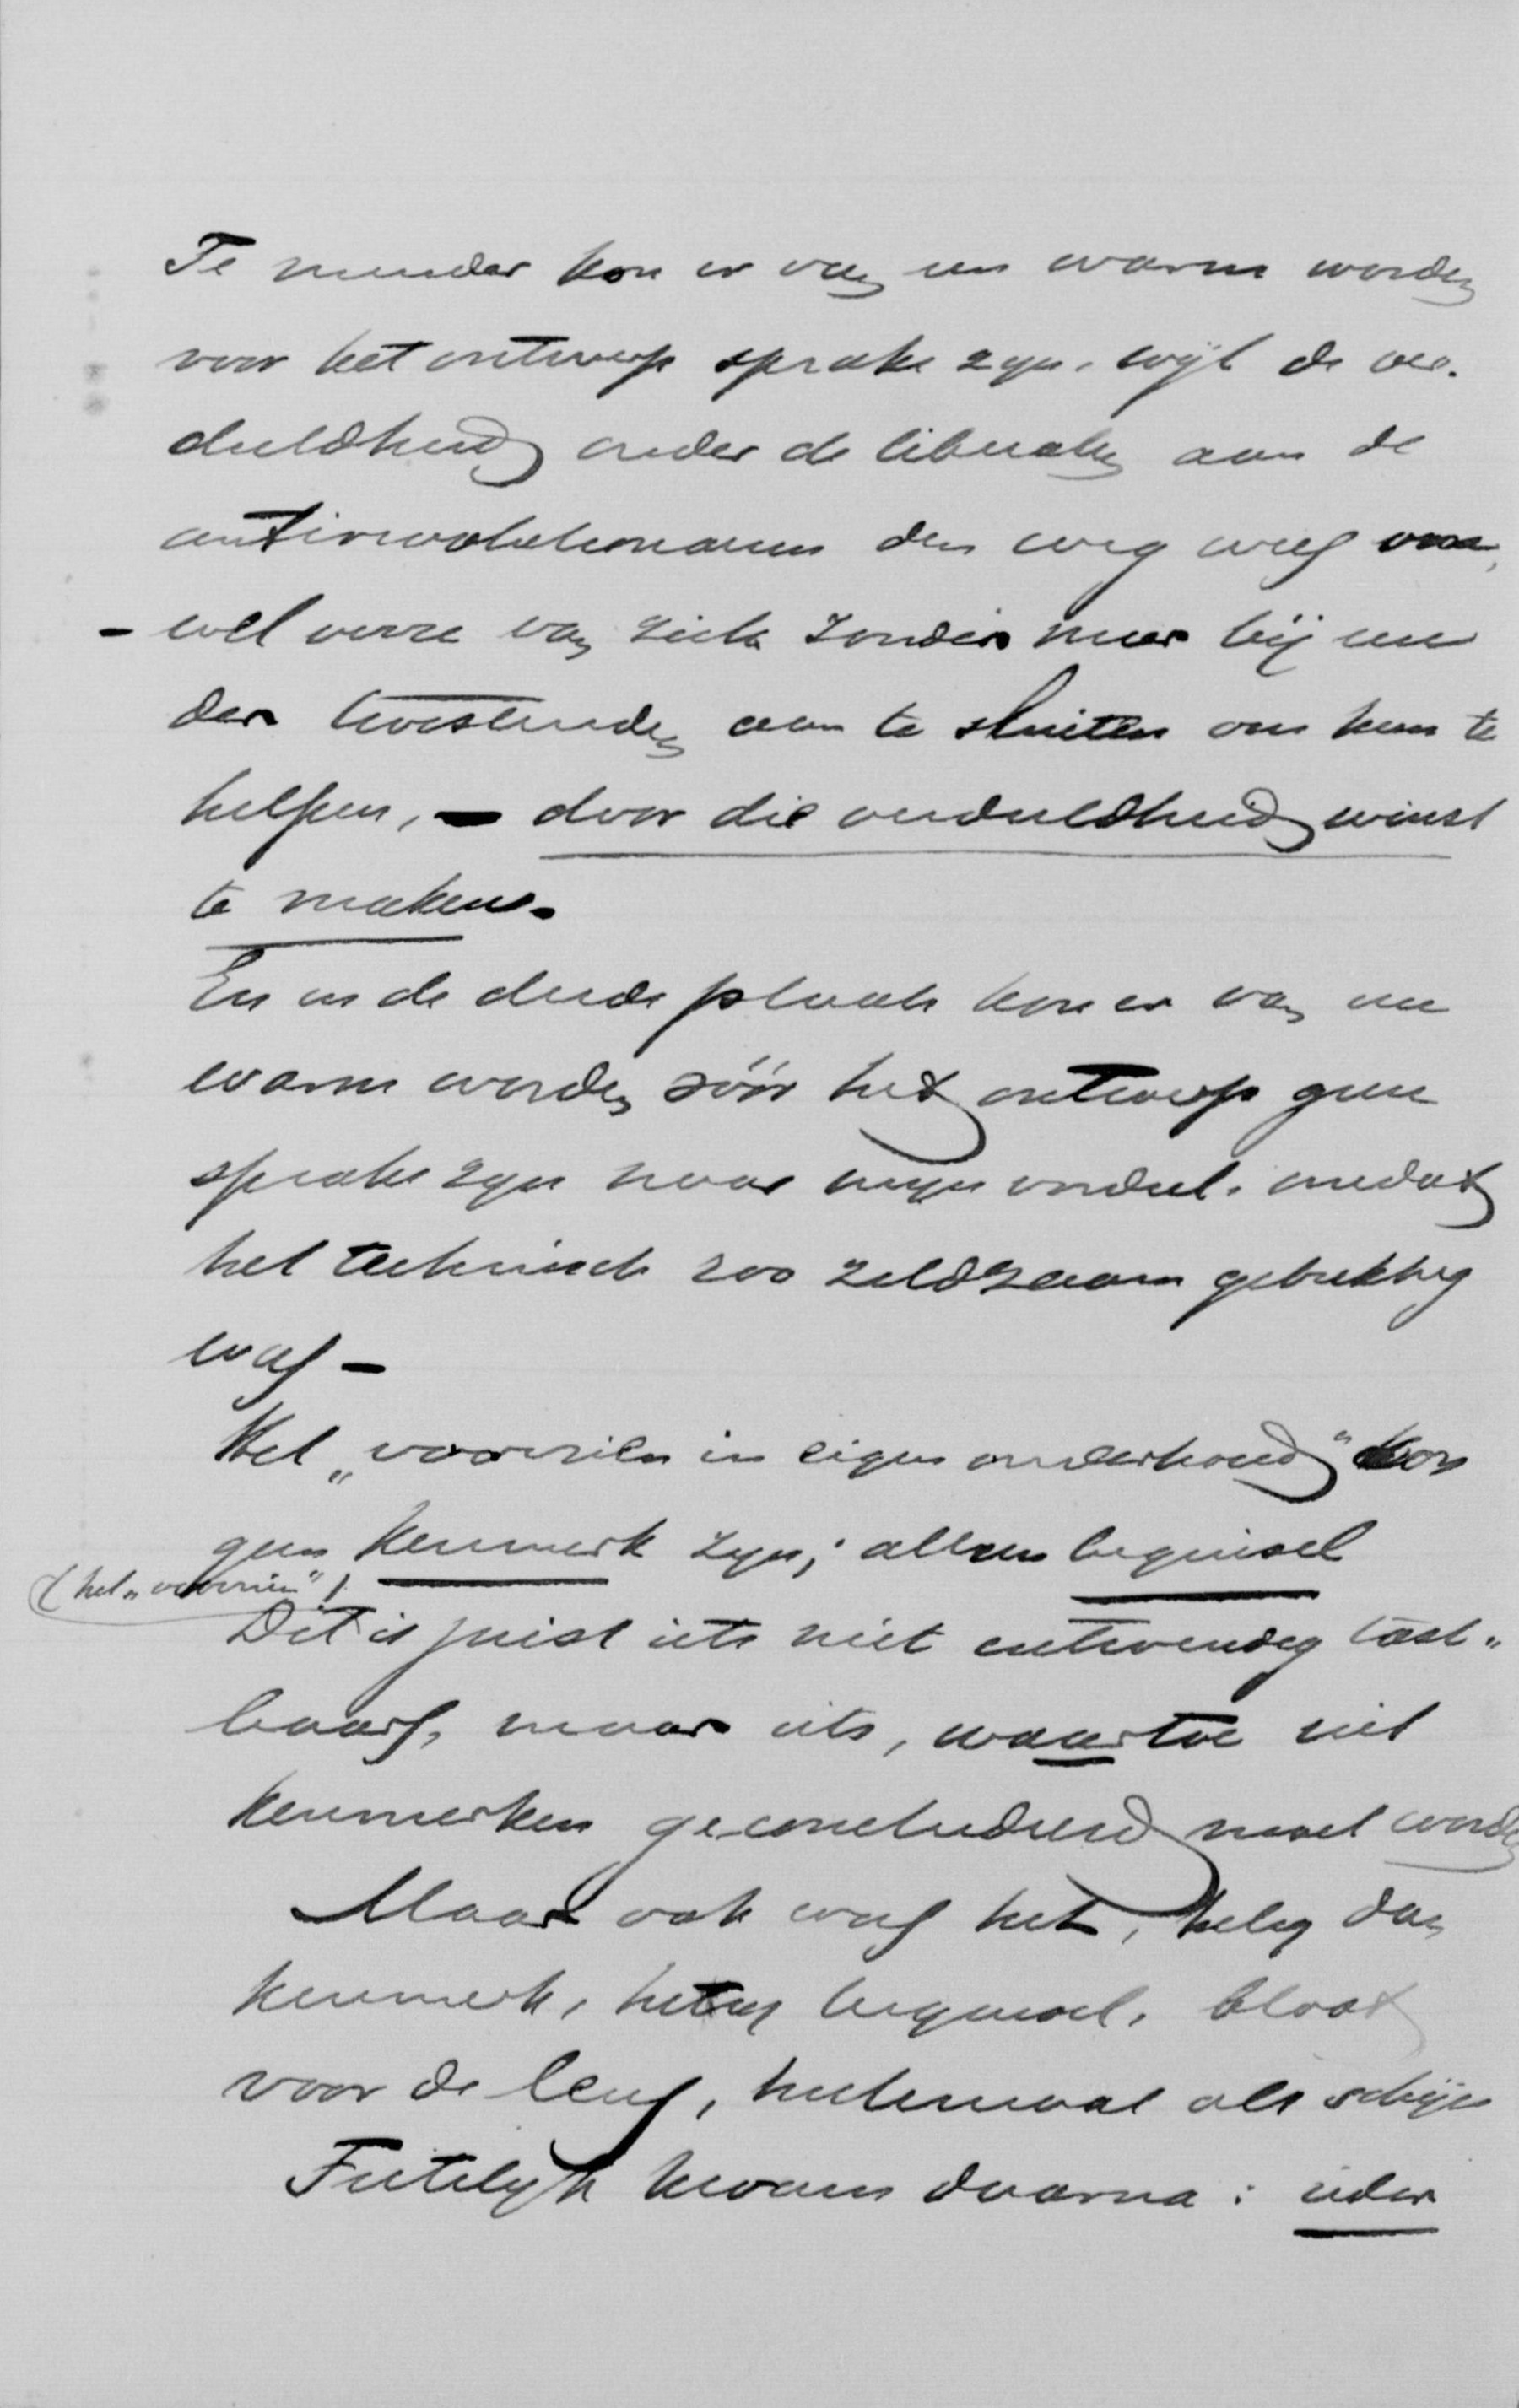 Te minder kon er van een warm worden
voor het ontwerp sprake zyn, wijl de ver-
deeldheid onder de liberalen aan de
antirevolutionairen den weg wees om,
- wel verre van zich zonder meer bij een
der twistenden aan te sluiten om hem te
helpen, - door die verdeeldheid winst
te maken.
En in de derde plaats kon er van een
warm worden vóór het ontwerp geen
sprake zyn naar myn oordeel, omdat
het technisch zoo zeldzaam gebrekkig
was -
Het „voorzien in eigen onderhoud" kon
geen kenmerk zyn; alleen beginsel
(het „voorzien")
Dit is juist iets niet uitwendig tast-
baars, maar iets, waartoe uit
kenmerken geconcludeerd moet worden
Maar ook was het, hetzy dan
kenmerk, hetzy beginsel, bloot
voor de leus, heelemaal als schijn
Feitelyk kwam daarna: ieder